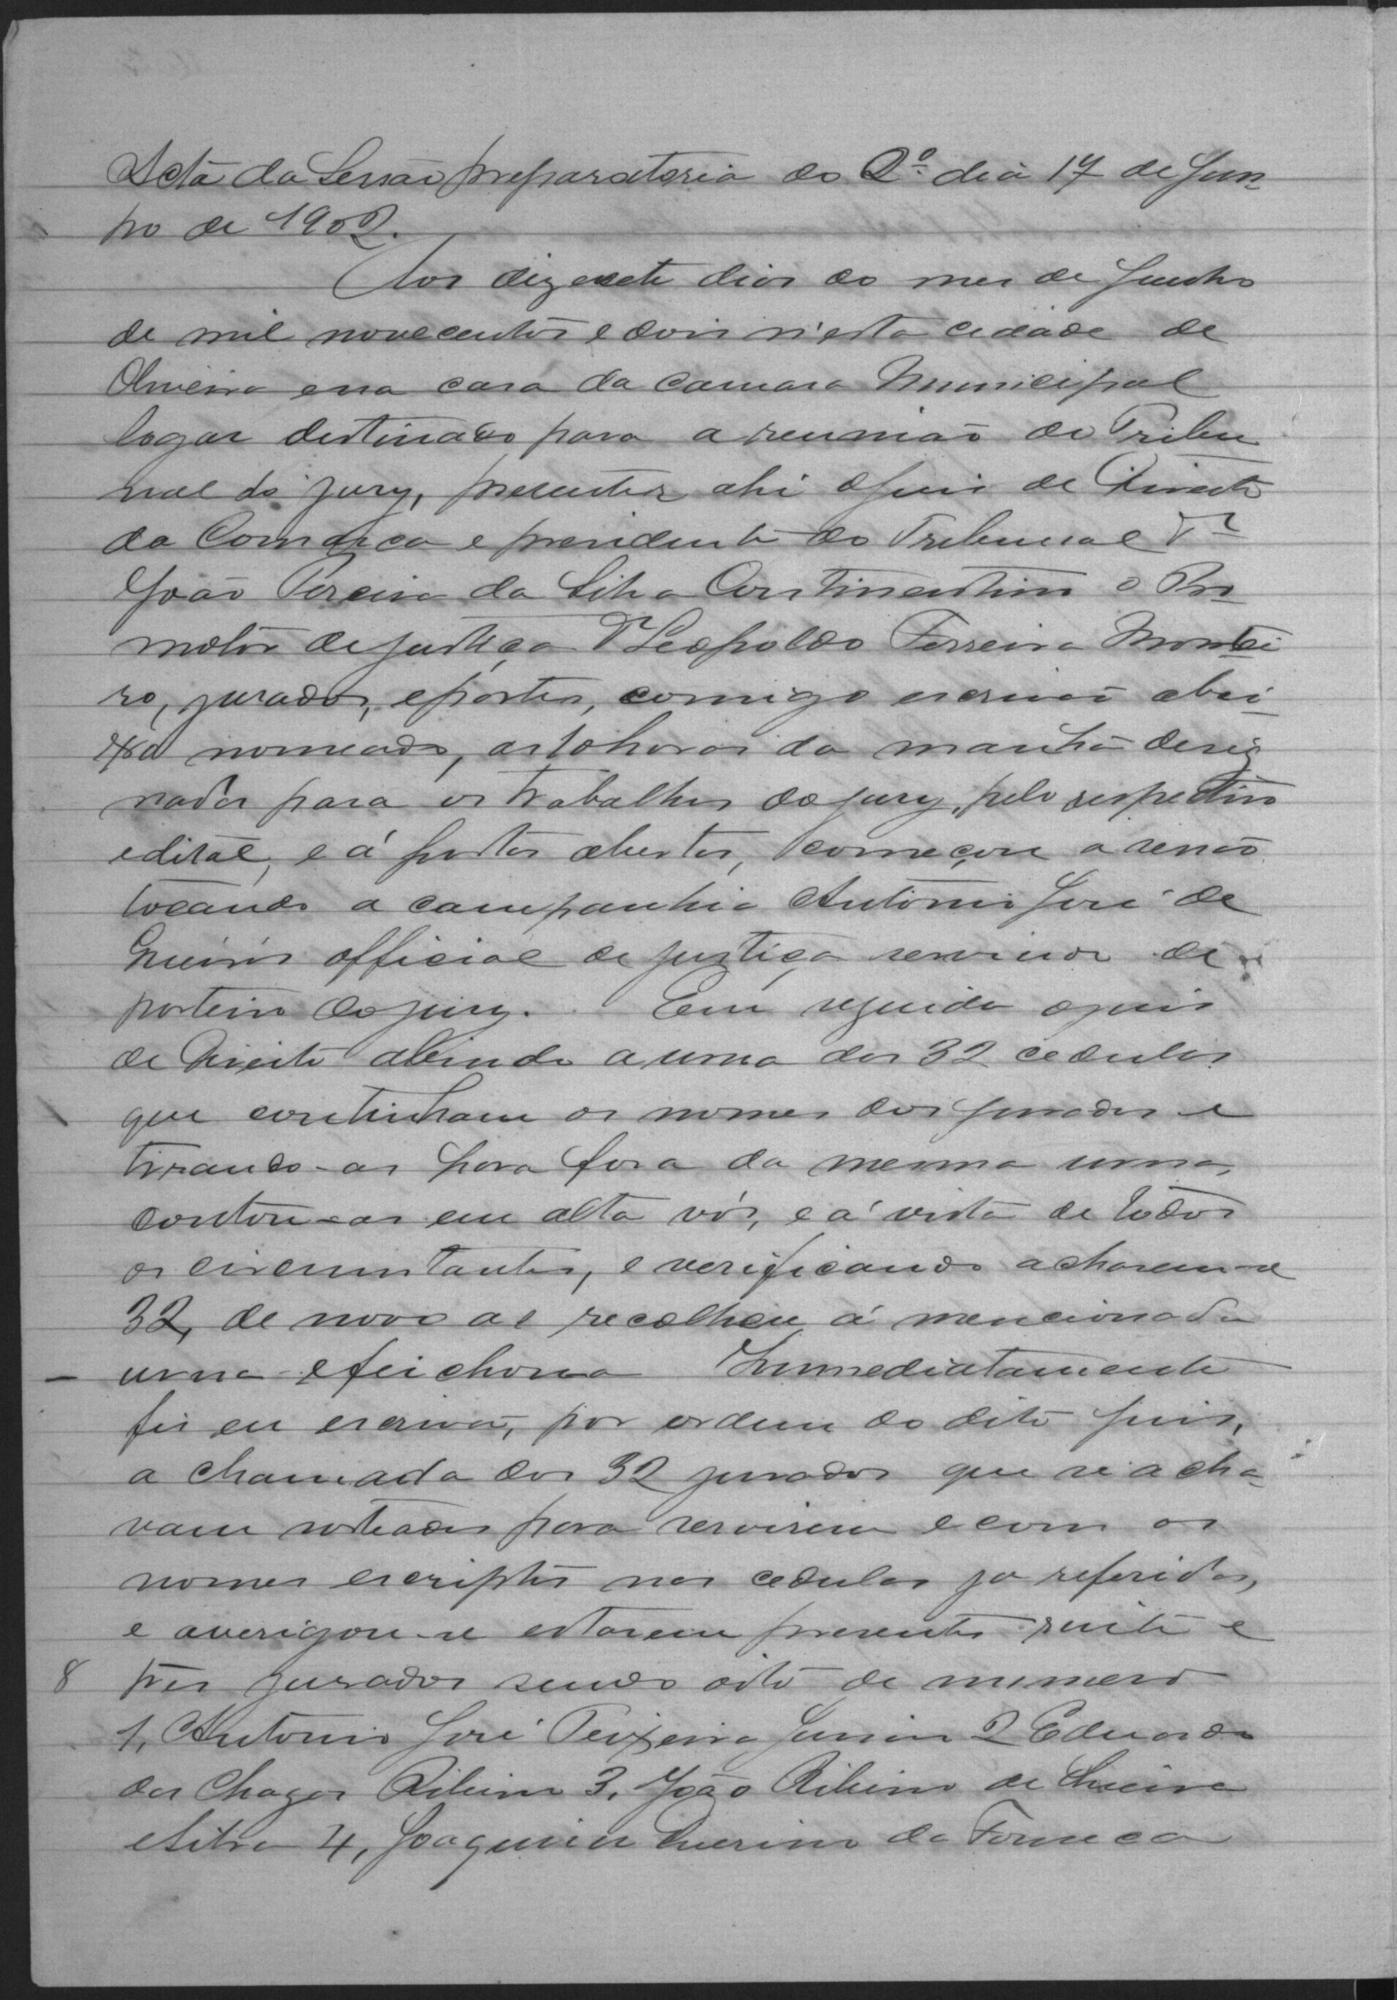 Acta da Sessão preparatoria do 2º dia 17 de Jun
ho de 1902.
Aos dizesete dias do mes de Junho
de mil novecentos e dois n'esta cidade de
Oliveira e na casa da Camara Municipal
logar destinado para a reunião do Tribu
nal do jury, presentes ahi o juis de Direito
da Comarca e presidente do Tribunal Dr
João Pereira da Silva Continentino o Pro
motor de justiça Dr Leopoldo Ferreira Montei
ro, jurados, e partes, comigo escrivão abai
xo nomeado, as 10 horas da manhã desig
nadas para os trabalhos do jury, pelo respectivo
edital, e á portas abertas, começou a sessão
tocando a campanhia Antonio José de
official de justiça servindo de
porteiro do jury. Em seguida o juis
de Direito abrindo a urna das 32 cedulas
que continham os nomes dos jurados e
tirando-as para fora da mesma urna,
contou-as em alta vós, e á vista de todos
os circunstantes, e verificando acharem-se
32, de novo as recolheu á mencionada
urna e feichou-a Immediatamente
fis eu escrivão, por ordem do dito juis,
a chamada dos 32 jurados que se acha
vam sorteados para servirem e com os
nomes escriptos nas cedulas ja referidas,
e averigou-se estarem presentes vinte e
8 tres jurados sendo oito de numero
1, Antonio José Teixeira Junior 2 Eduardo
das Chagas Ribeiro 3, João Ribeiro de
e Silva 4, Joaquim da Fonseca